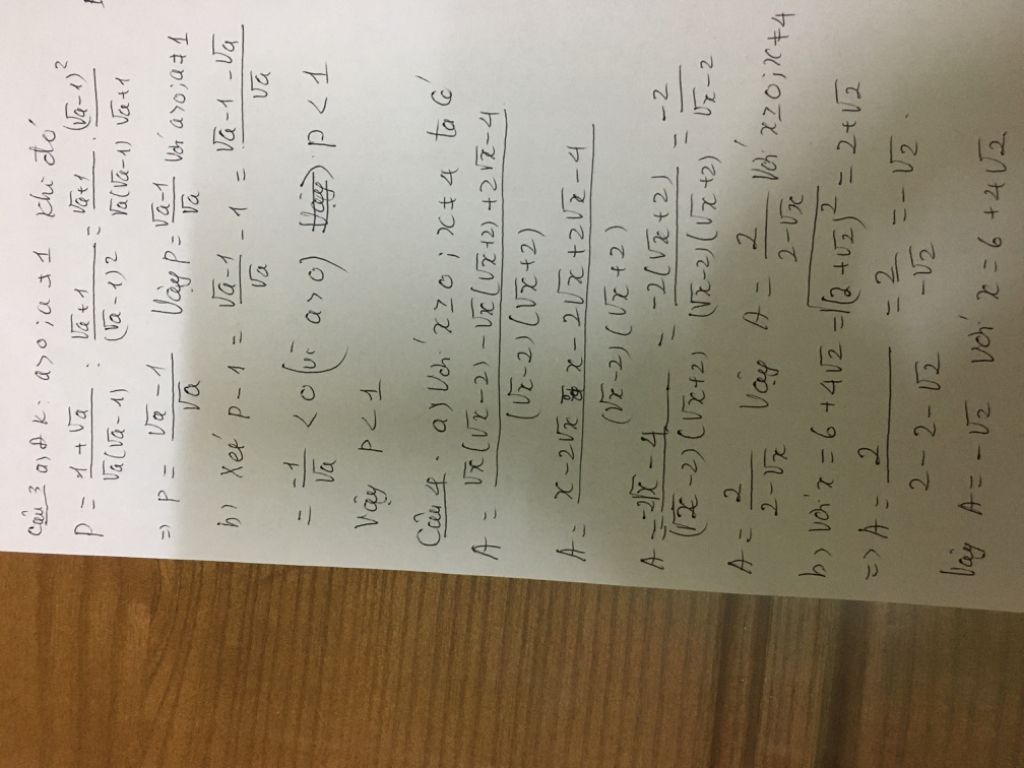 Câu 3 a) ĐK: a>0; a≠1 Khi đó
P = (1+√a)/(√a(√a-1)) : (√a+1)/(√a-1)² = (√a+1)/(√a(√a-1)) · (√a-1)²/(√a+1)
=> P = (√a-1)/√a Vậy P = (√a-1)/√a với a>0; a≠1
b) Xét P-1 = (√a-1)/√a - 1 = (√a-1-√a)/√a
= -1/√a < 0 (vì a>0) P<1
Vậy P<1
Câu 4. a) Với x≥0; x≠4 ta có
A = (√x(√x-2) - √x(√x+2) + 2√x-4)/((√x-2)(√x+2))
A = (x-2√x - x-2√x+2√x-4)/((√x-2)(√x+2))
A = (-2√x-4)/((√x-2)(√x+2)) = -2(√x+2)/((√x-2)(√x+2)) = -2/(√x-2)
A = 2/(2-√x) Vậy A = 2/(2-√x) với x≥0; x≠4
b) Với x = 6+4√2 = √(2+√2)² = 2+√2
=> A = 2/(2-2-√2) = 2/(-√2) = -√2.
Vậy A = -√2 với x = 6+4√2